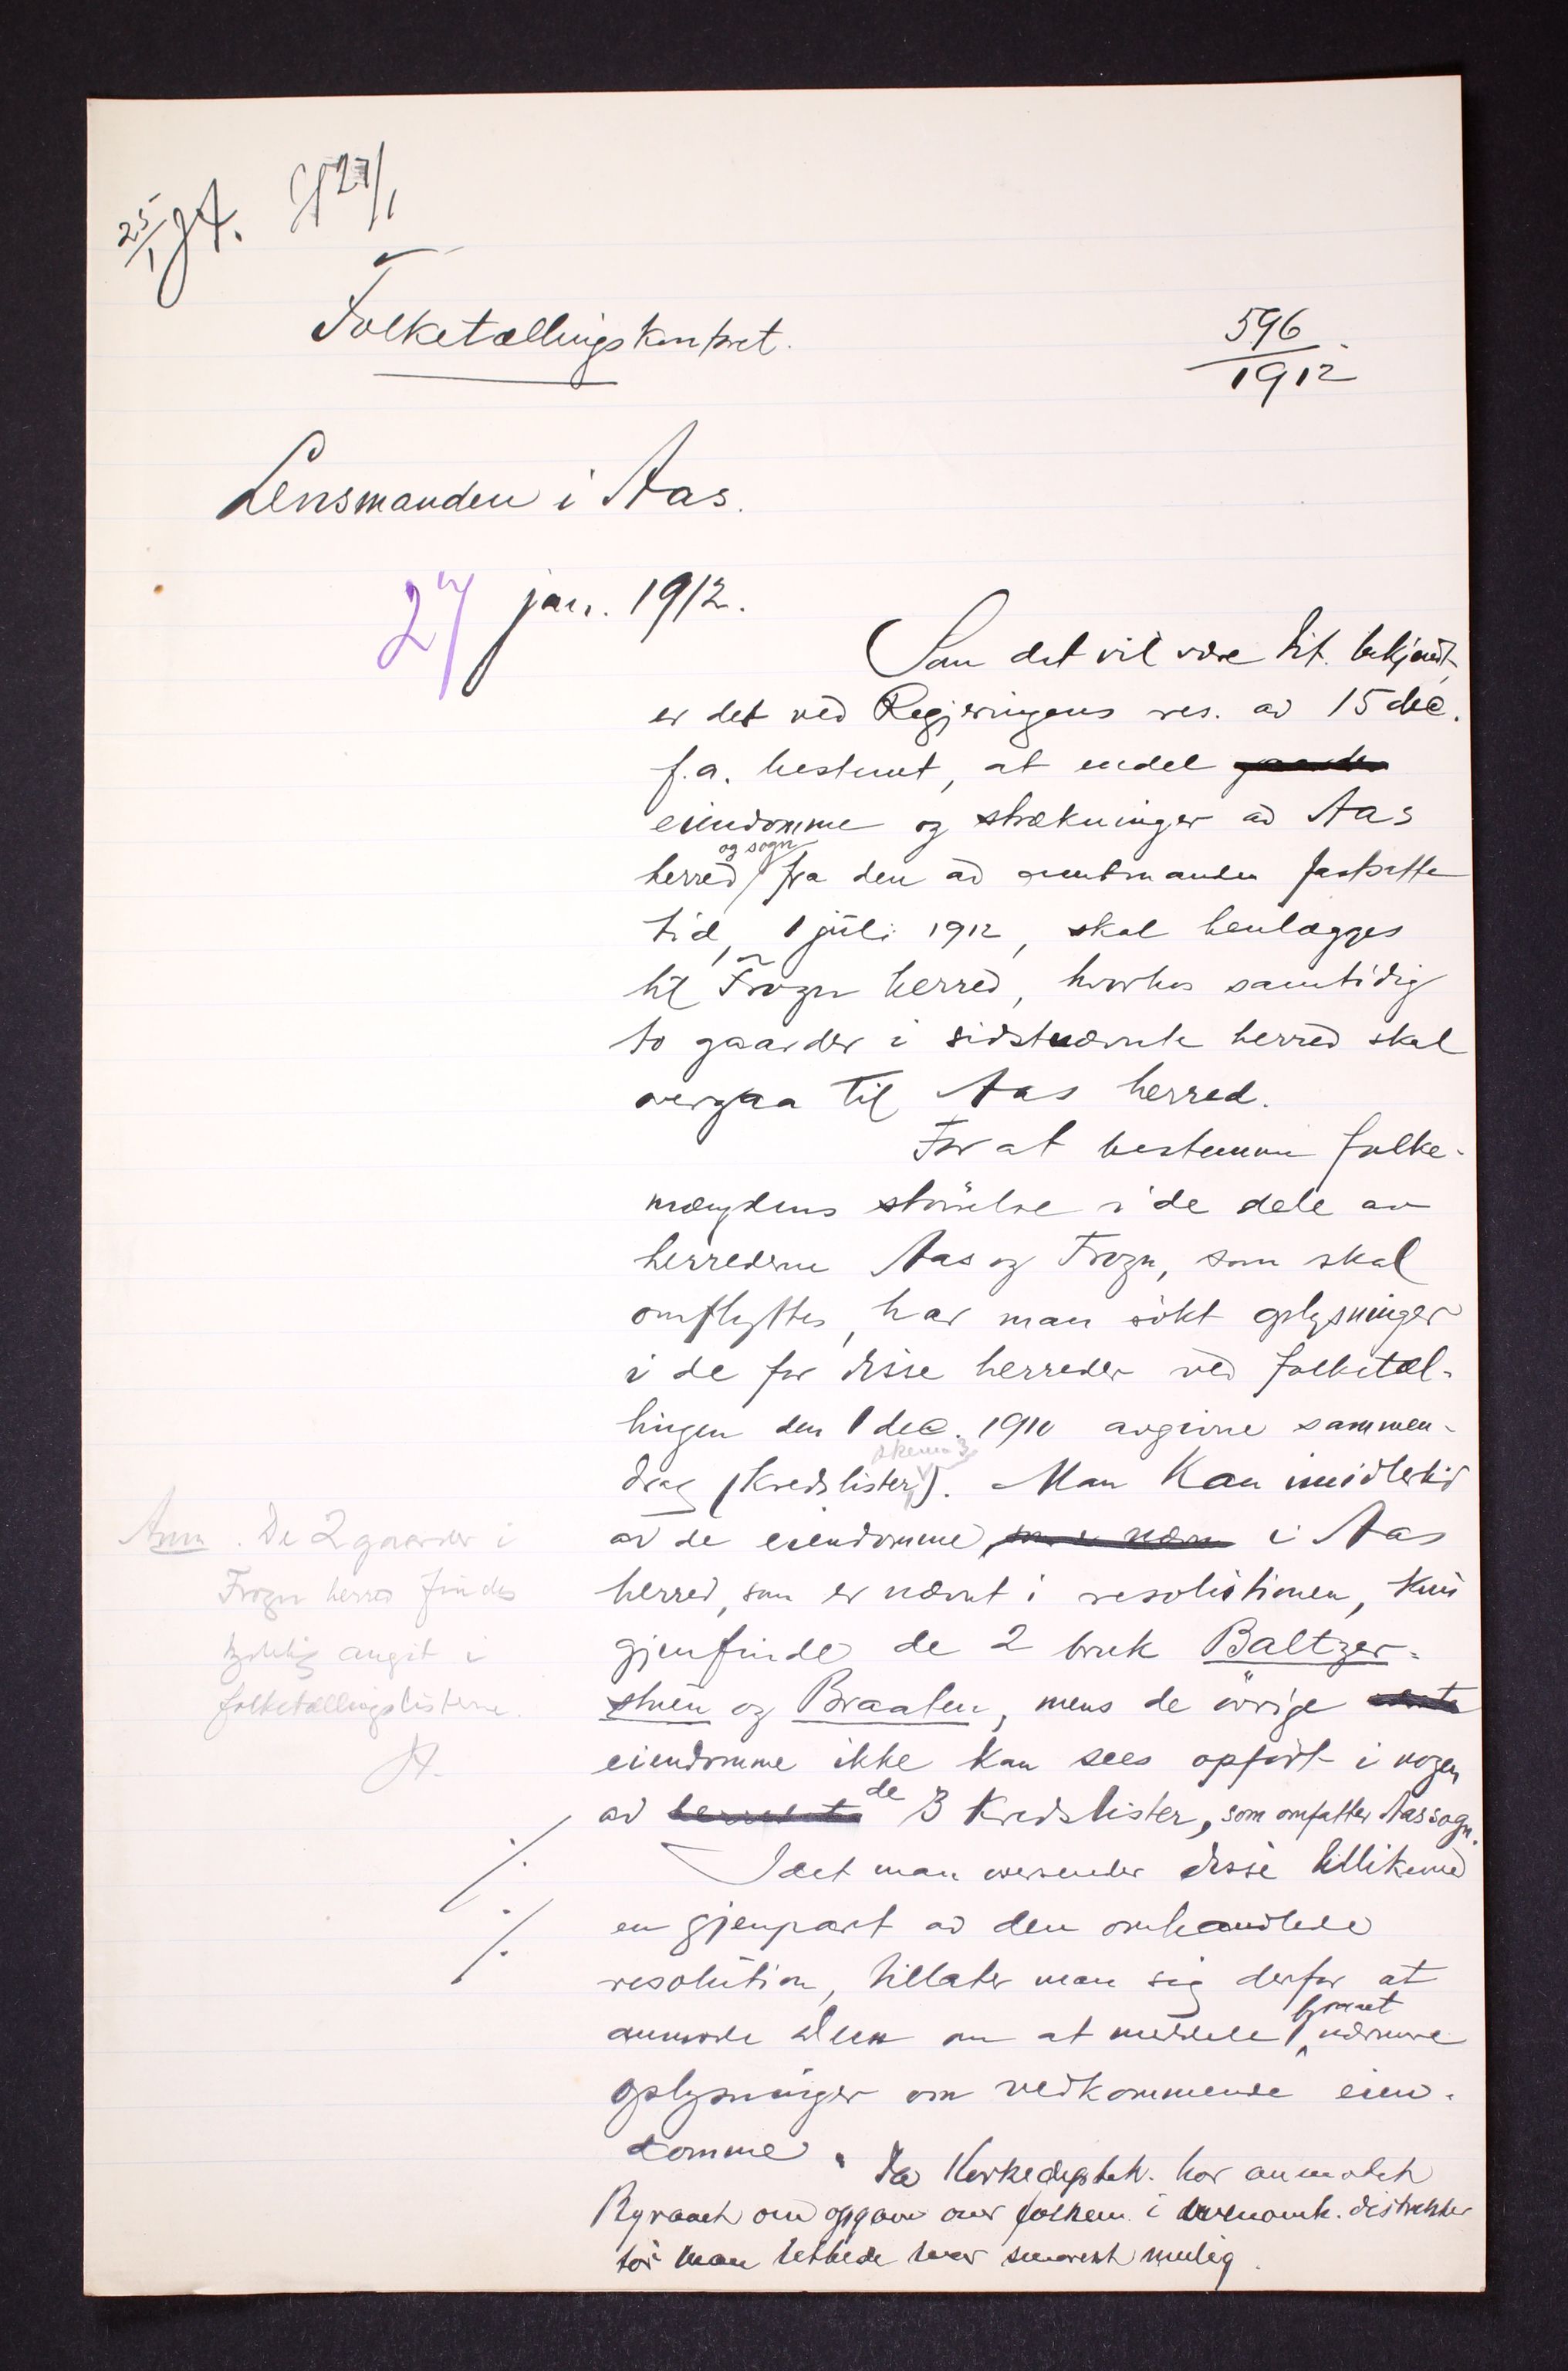 25/1 JA. 27/1
Folketællingskontoret.
596
1912
Lensmanden i Aas.
27 jan. 1912.
Som det vil være hr. bekjendt,
er det ved Regjeringens res. av 15 dec.
f.a. bestemt, at endel
eiendomme og strækninger av Aas
herred og sogn fra den av amtmanden fastsatte
tid, 1 juli 1912, skal henlægges
til Frogn herred, hvorhos samtidig
to gaarder i sidstnævnte herred skal
overgaa til Aas herred.
For at bestemme folke-
mængdens störrelse i de dele av
herrederne Aas og Frogn, som skal
omflyttes, har man sökt oplysninger
i de for disse herreder ved folketæl-
lingen den 1 dec. 1910 avgivne sammen-
drag (kredslister, skema 3). Man kan imidlertid
av de eiendomme, i Aas
herred, som er nævnt i resolutionen, kun
gjenfinde de 2 bruk Baltzer-
stuen og Braaten, mens de övrige
eiendomme ikke kan sees opfört i nogen
av de 3 kredslister, som omfatter Aas sogn.
Idet man oversender disse tillikemed
en gjenpart av den omhandlede
resolution, tillater man sig derfor at
anmode Dem om at meddele byraaet nærmere
oplysninger om vedkommende eien-
domme. Da Kirkedept. har anmodet
Byraaet om opgave over folkem. i ovennævnte distrikter
tör man utbede svar snarest mulig.
Anm. De 2 gaarder i
Frogn herred findes
tydelig angit i
folketællingslisterne.
JA.